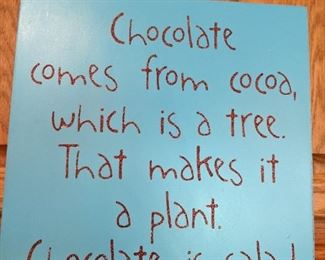 Chocolate
comes from cocoa,
which is a tree.
That makes it
a plant.
Chocolate is salad